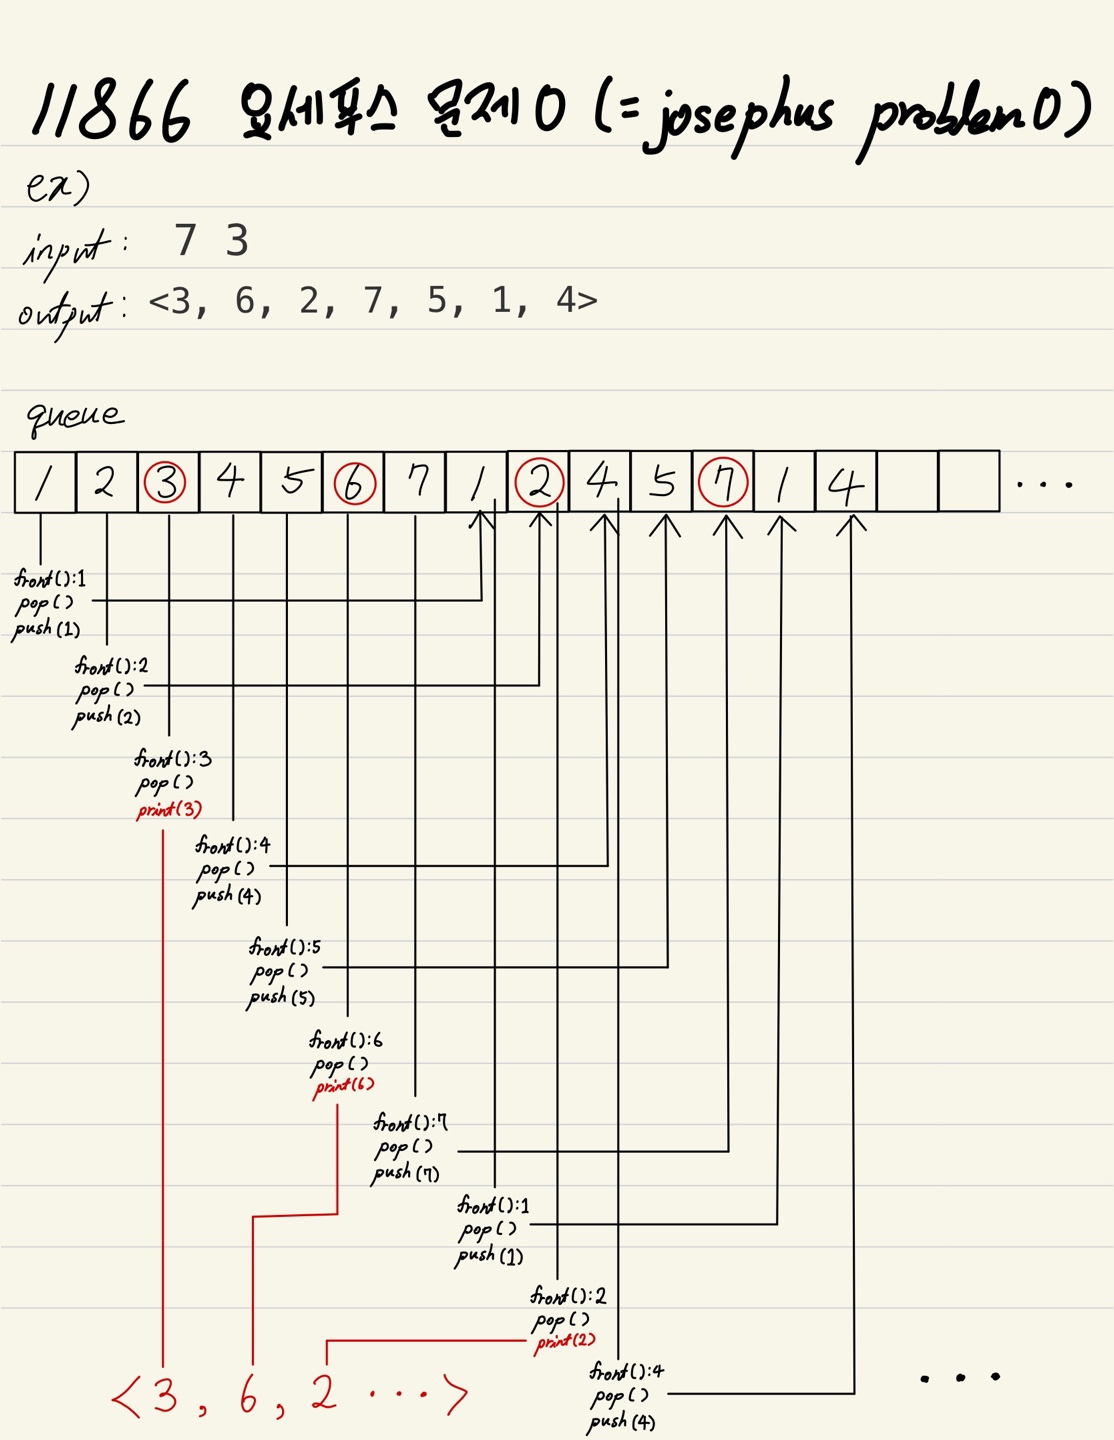 11866 요세푸스 문제0 (=josephus problem0)
ex)
input: 7 3
output: <3, 6, 2, 7, 5, 1, 4>
queue
1 2 3 4 5 6 7 1 2 4 5 7 1 4 ...
front():1
pop()
push(1)
front():2
pop()
push(2)
front():3
pop()
print(3)
front():4
pop()
push(4)
front():5
pop()
push(5)
front():6
pop()
print(6)
front():7
pop()
push(7)
front():1
pop()
push(1)
front():2
pop()
print(2)
front():4
pop()
push(4)
...
<3, 6, 2 ...>